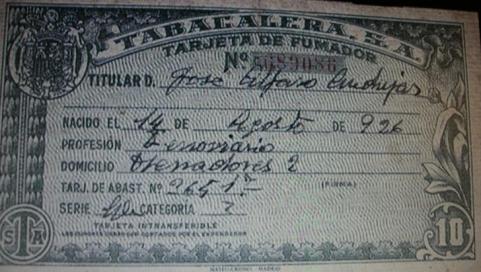 TABACALERA, S.A.
TARJETA DE FUMADOR
Nº 5689086
TITULAR D. José Alfaro Andújar
NACIDO EL 14 DE Agosto DE 926
PROFESIÓN Ferroviario
DOMICILIO 2
TARJ. DE ABAST. Nº 2651
(FIRMA)
SERIE CATEGORÍA 2
TARJETA INTRANSFERIBLE
S T A
10